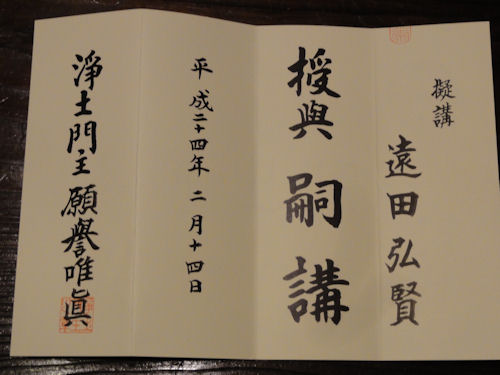 擬講
遠田弘賢
授與嗣講
平成二十四年二月十四日
浄土門主願譽唯眞